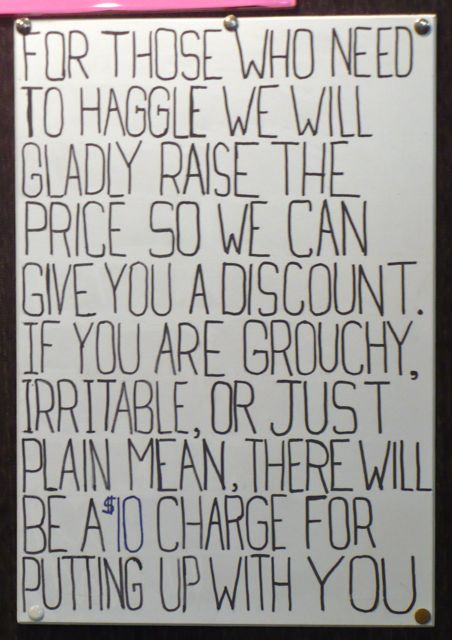 FOR THOSE WHO NEED
TO HAGGLE WE WILL
GLADLY RAISE THE
PRICE SO WE CAN
GIVE YOU A DISCOUNT.
IF YOU ARE GROUCHY,
IRRITABLE, OR JUST
PLAIN MEAN, THERE WILL
BE A $10 CHARGE FOR
PUTTING UP WITH YOU